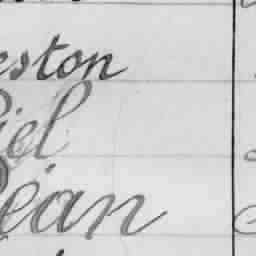 eston
iel
éan